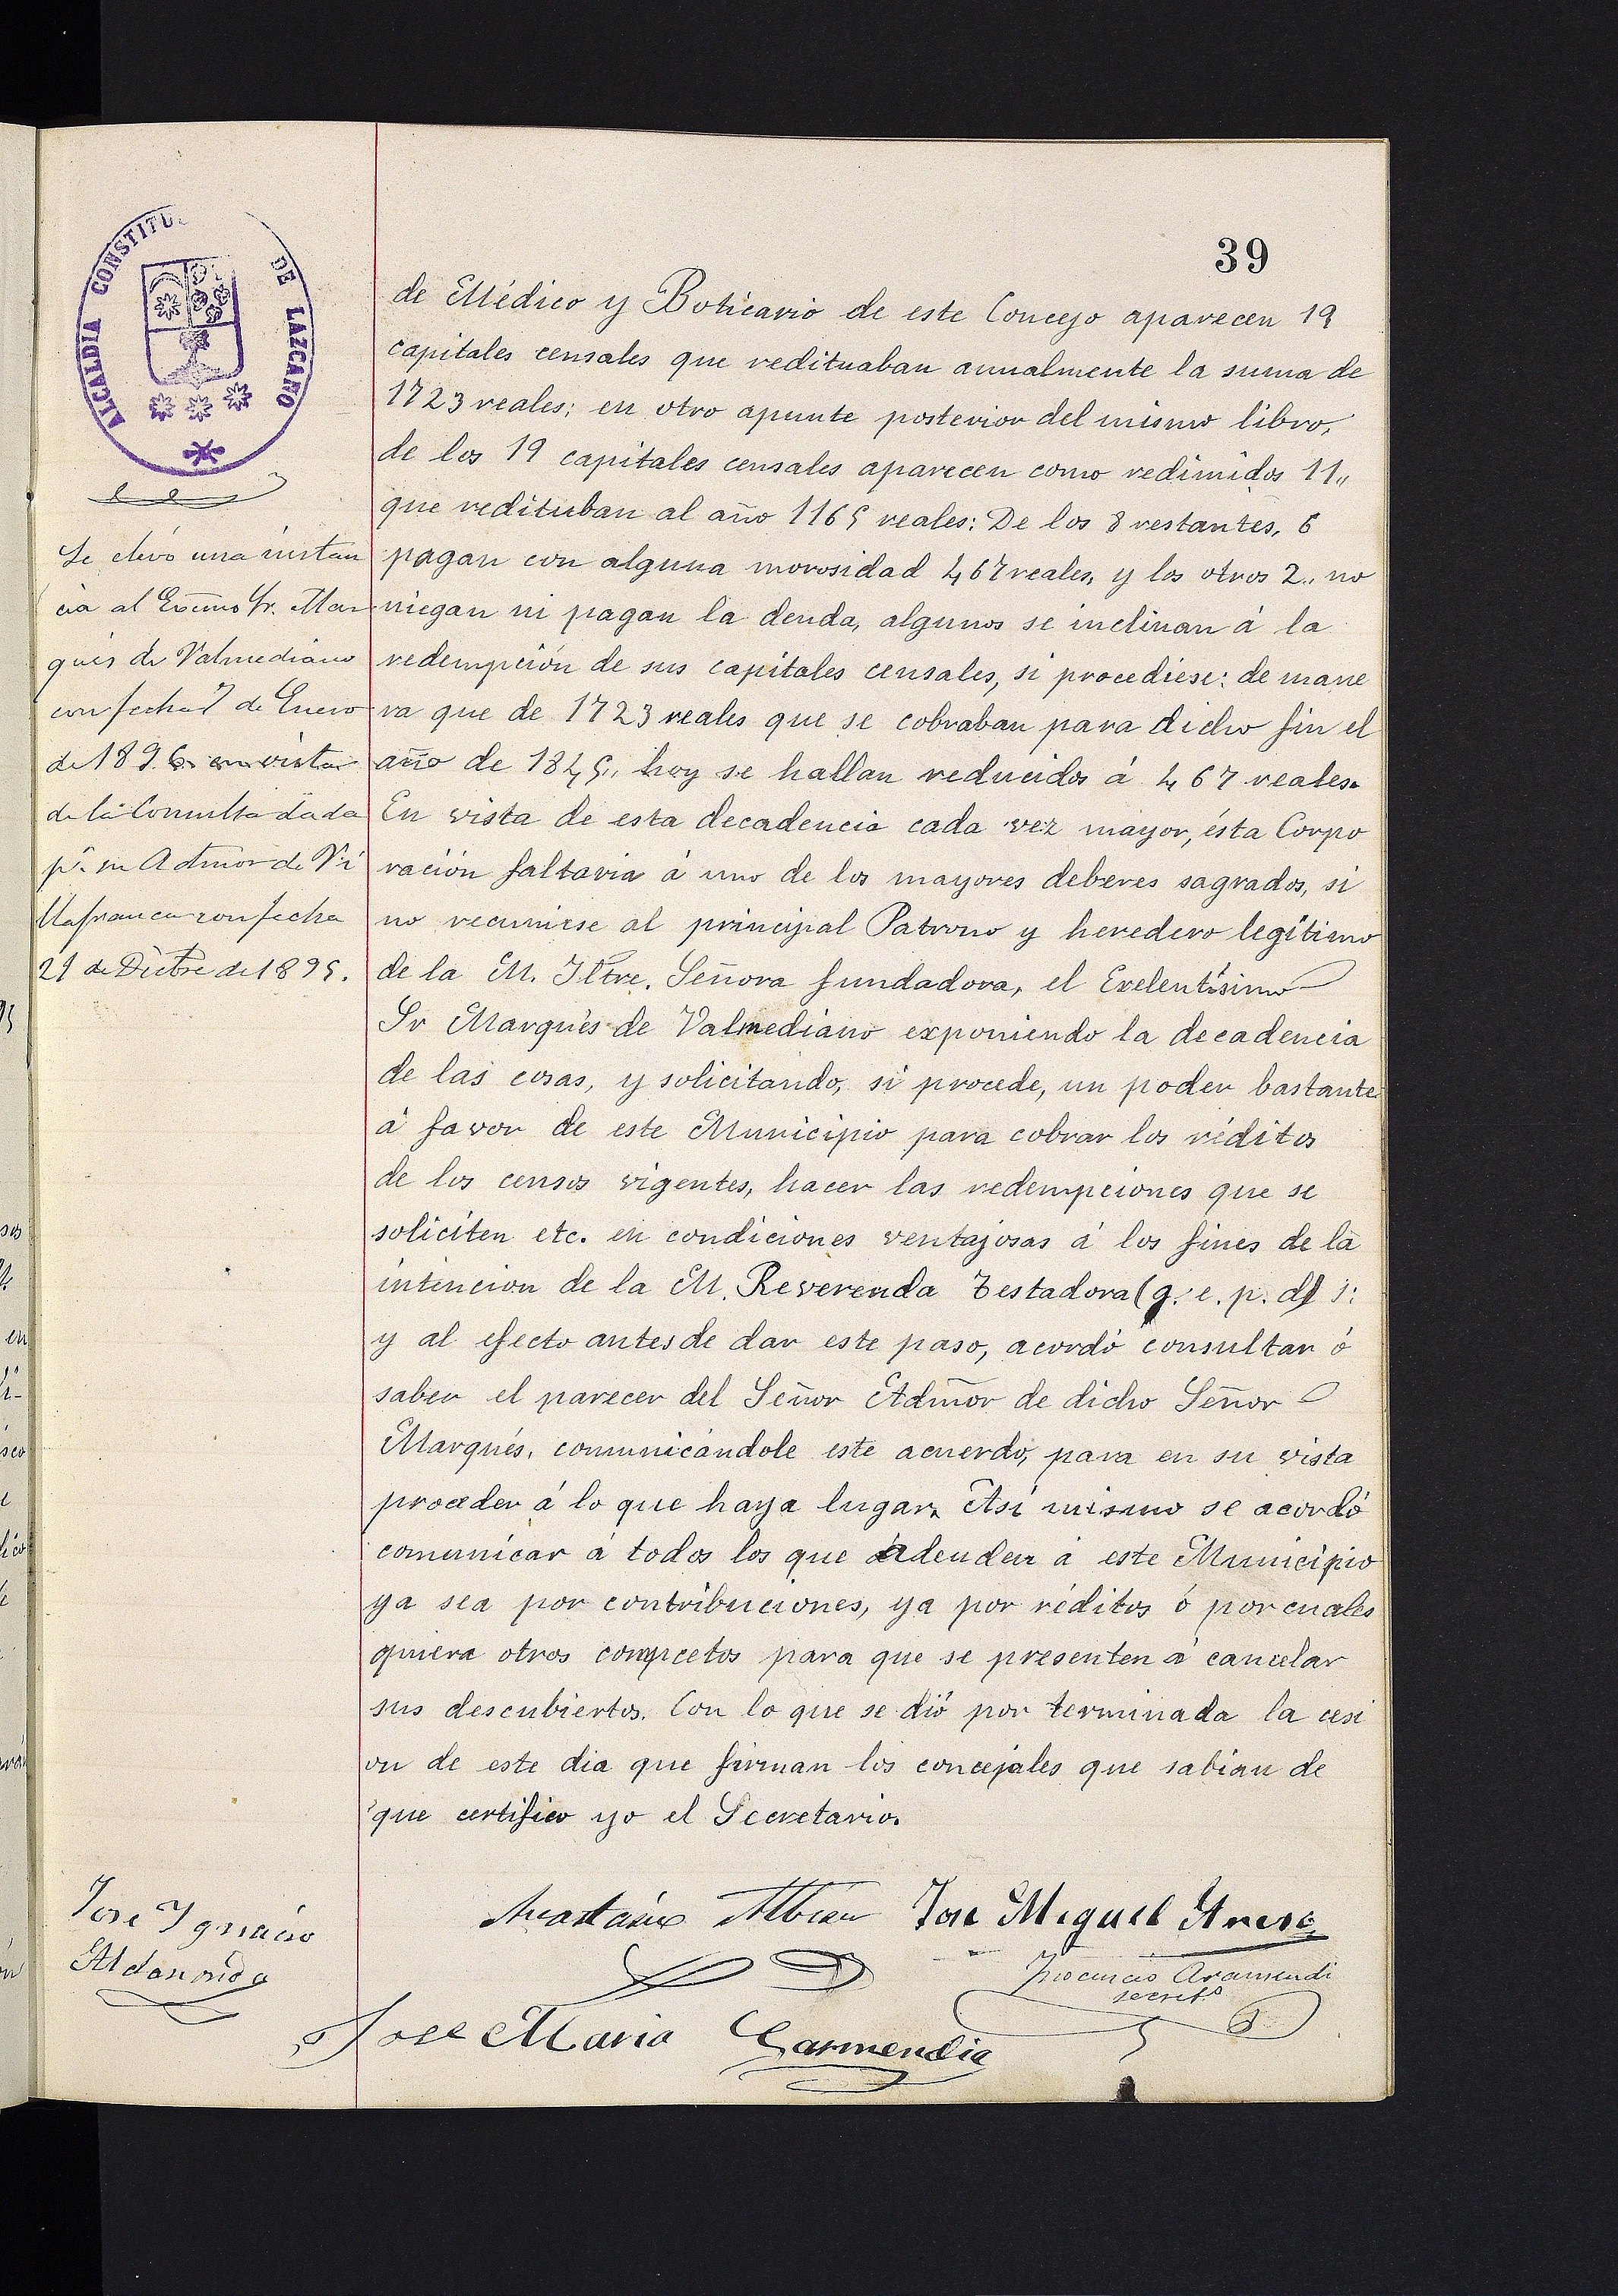 39
ALCALDIA CONSTITU DE LAZCANO
Se elevó una instan
cia al Excmo Sr. Mar
qués de Valmediano
con fecha 7 de Enero
de 1896 en vista
de la Consulta dada
pr. su Admor de Vi
llafranca con fecha
21 de Dictre de 1895.
de Médico y Boticario de este Concejo aparecen 19
capitales censales que redituaban anualmente la suma de
1723 reales; en otro apunte posterior del mismo libro,
de los 19 capitales censales aparecen como redimidos 11,,
que redituban al año 1165 reales: De los 8 restantes, 6
pagan con alguna morosidad 467 reales, y los otros 2,, no
niegan ni pagan la deuda, algunos se inclinan á la
redempción de sus capitales censales, si procediese: de mane
ra que de 1723 reales que se cobraban para dicho fin el
año de 1845,, hoy se hallan reducidos á 467 reales.
En vista de esta decadencia cada vez mayor, ésta Corpo
ración faltaria á uno de los mayores deberes sagrados, si
no recurriese al principal Patrono y heredero legítimo
de la M. Iltre. Señora fundadora, el Exelentísimo
Sr Marqués de Valmediano exponiendo la decadencia
de las cosas, y solicitando, si procede, un poder bastante
á favor de este Municipio para cobrar los réditos
de los censos vigentes, hacer las redempciones que se
soliciten etc. en condiciones ventajosas á los fines de la
intencion de la M. Reverenda Testadora (q. e. p. d)
y al efecto antes de dar este paso, acordó consultar ó
saber el parecer del Señor Admor de dicho Señor
Marqués, comunicándole este acuerdo, para en su vista
proceder á lo que haya lugar. Así mismo se acordó
comunicar á todos los que adeudan á este Municipio
ya sea por contribuciones, ya por réditos ó por cuales
quiera otros compcetos para que se presenten á cancelar
sus descubiertos. Con lo que se dió por terminada la cesi
on de este dia que firman los concejales que sabian de
que certifico yo el Secretario.
Jose Ygnacio
Aldanondo
Anastasio Albisu Jose Miguel
Aramendi
secret.o
Jose Maria Garmendia